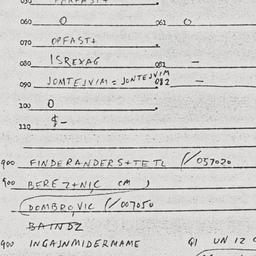 060 O 061 O
070 OPFAST+
080 ISREXAG 081 —
090 JOMTEJVIM = JONTEJVIM 092 —
100 O
110 $-
900 FINDERANDERS+TETL (/057020
900 BEREZ+NIC (M )
DOMBROVIC (/007050
BAINDZ
900 INGAJNMIDERMAME 91 UN 12 C